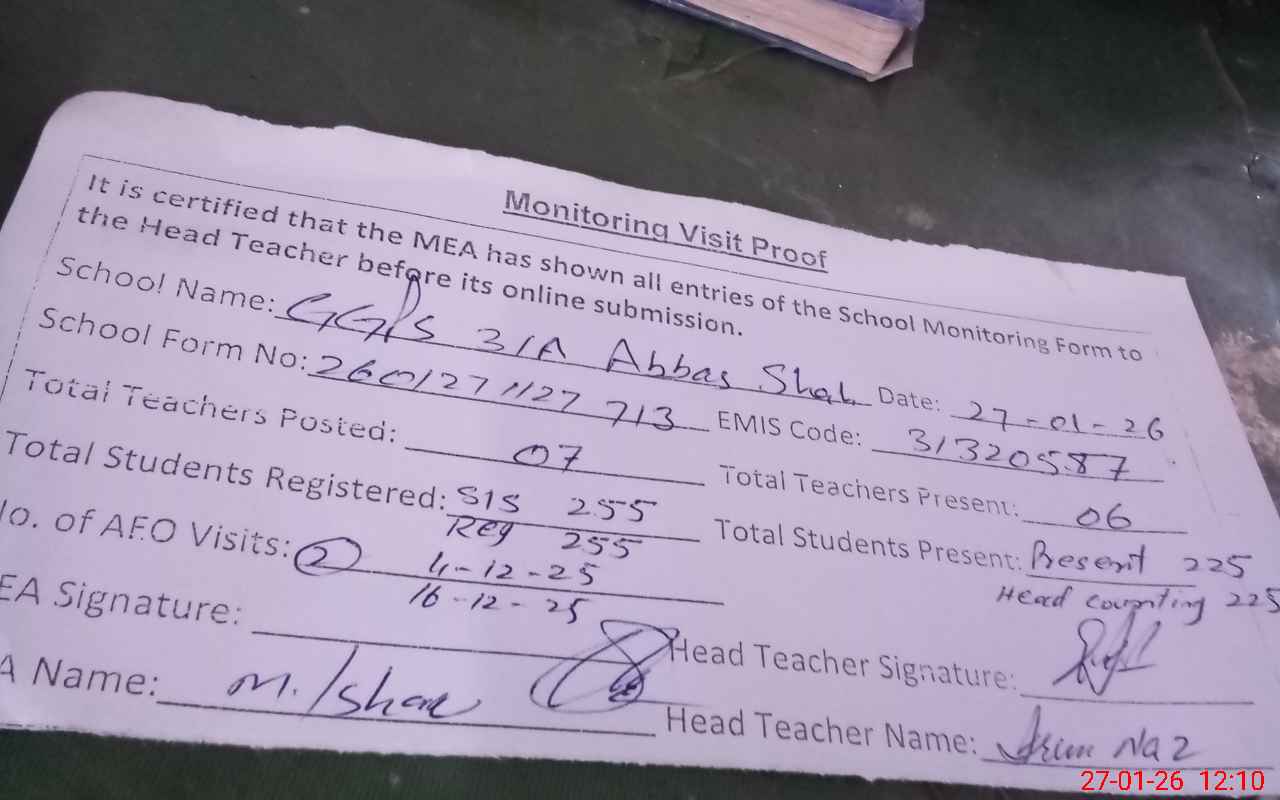 Monitoring Visit Proof
It is certified that the MEA has shown all entries of the School Monitoring Form to
the Head Teacher before its online submission.
School Name: GGPS 31A Abbas Shah Date: 27-01-26
School Form No: 2601271127713 EMIS Code: 31320587
Total Teachers Posted: 07 Total Teachers Present: 06
Total Students Registered: SIS 255 Total Students Present: Present 225
Reg 255 Head counting 225
No. of AEO Visits: 2 4-12-25
16-12-25
EA Signature: Head Teacher Signature:
A Name: M. Head Teacher Name: Naz
27-01-26 12:10